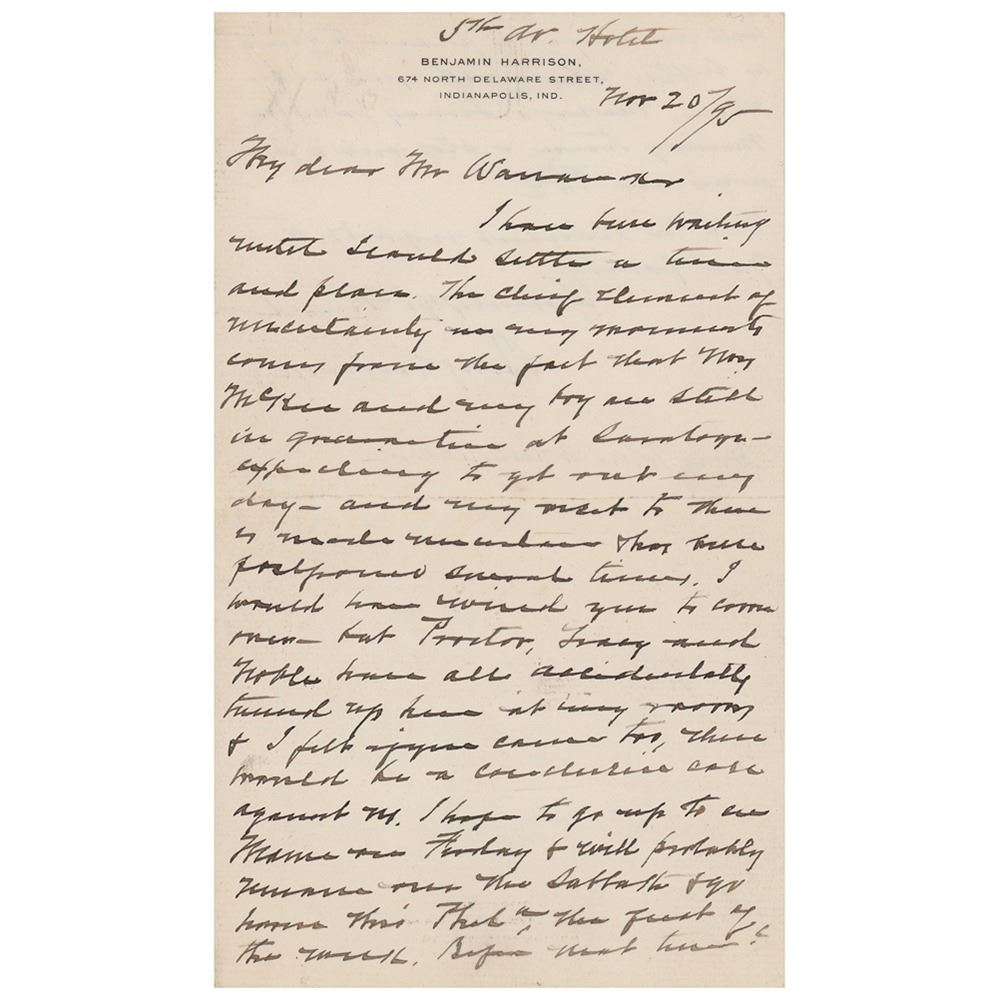 5th Av. Hotel
BENJAMIN HARRISON,
674 NORTH DELAWARE STREET,
INDIANAPOLIS, IND.
Nov 20/95
My dear Mr Wanamaker
I have been waiting
until I could settle a time
and place. The chief element of
uncertainty in my movements
comes from the fact that Mrs
McKee and my boy are still
in quarantine at Saratoga –
expecting to get out any
day – and my visit to them
is made uncertain & has been
postponed several times. I
would have wired you to come
over – but Proctor, Tracy and
Noble have all accidentally
turned up here at my rooms
& I felt if you came too, there
would be a conclusive case
against us. I hope to go up to see
Mame on Friday & will probably
remain over the Sabbath & go
home thro' Phila, the first of
the week. Before that time